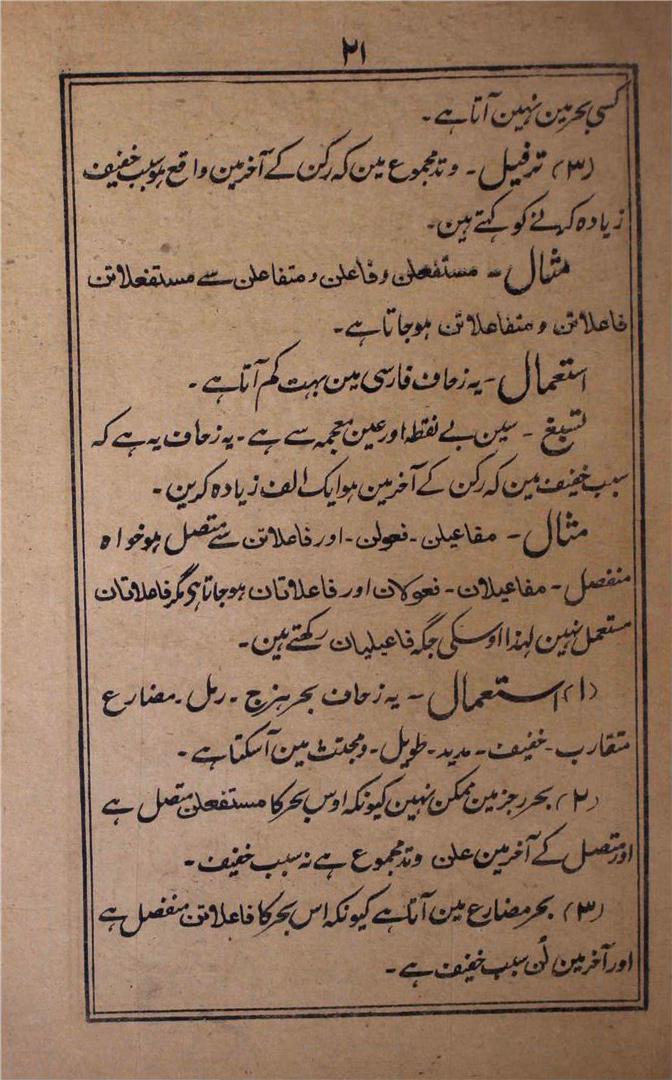 ۲۱
کسی بحر مین نہین آتا ہے۔
(۳) ترفیل۔ وتد مجموع مین کہ رکن کے آخر مین واقع ہو سبب خفیف
زیادہ کہنے کو کہتے ہین۔
مثال۔ مستفعلن و فاعلن و متفاعلن سے مستفعلاتن
فاعلاتن و متفاعلاتن ہو جاتا ہے۔
استعمال۔ یہ زحاف فارسی مین بہت کم آتا ہے۔
تسبیغ۔ سین بے نقطہ اور عین معجمہ سے ہے۔ یہ زحاف یہ ہے کہ
سبب خفیف مین کہ رکن کے آخر مین ہو ایک الف زیادہ کرین۔
مثال۔ مفاعیلن۔ فعولن۔ اور فاعلاتن سے متصل ہو خواہ
منفصل۔ مفاعیلان۔ فعولان اور فاعلاتان ہو جاتا ہی مگر فاعلاتان
مستعمل نہین لہذا اوسکی جگہ فاعیلیان رکھتے ہین۔
(۱) استعمال۔ یہ زحاف بحر ہزج۔ رمل۔ مضارع
متقارب۔ خفیف۔ مدید۔ طویل۔ ومجتث مین آسکتا ہے۔
(۲) بحر رجز مین ممکن نہین کیونکہ اوس بحر کا مستفعلن متصل ہے
اور متصل کے آخر مین علن وتد مجموع ہے نہ سبب خفیف۔
(۳) بحر مضارع مین آتا ہے کیونکہ اس بحر کا فاعلاتن منفصل ہے
اور آخر مین تُن سبب خفیف ہے۔